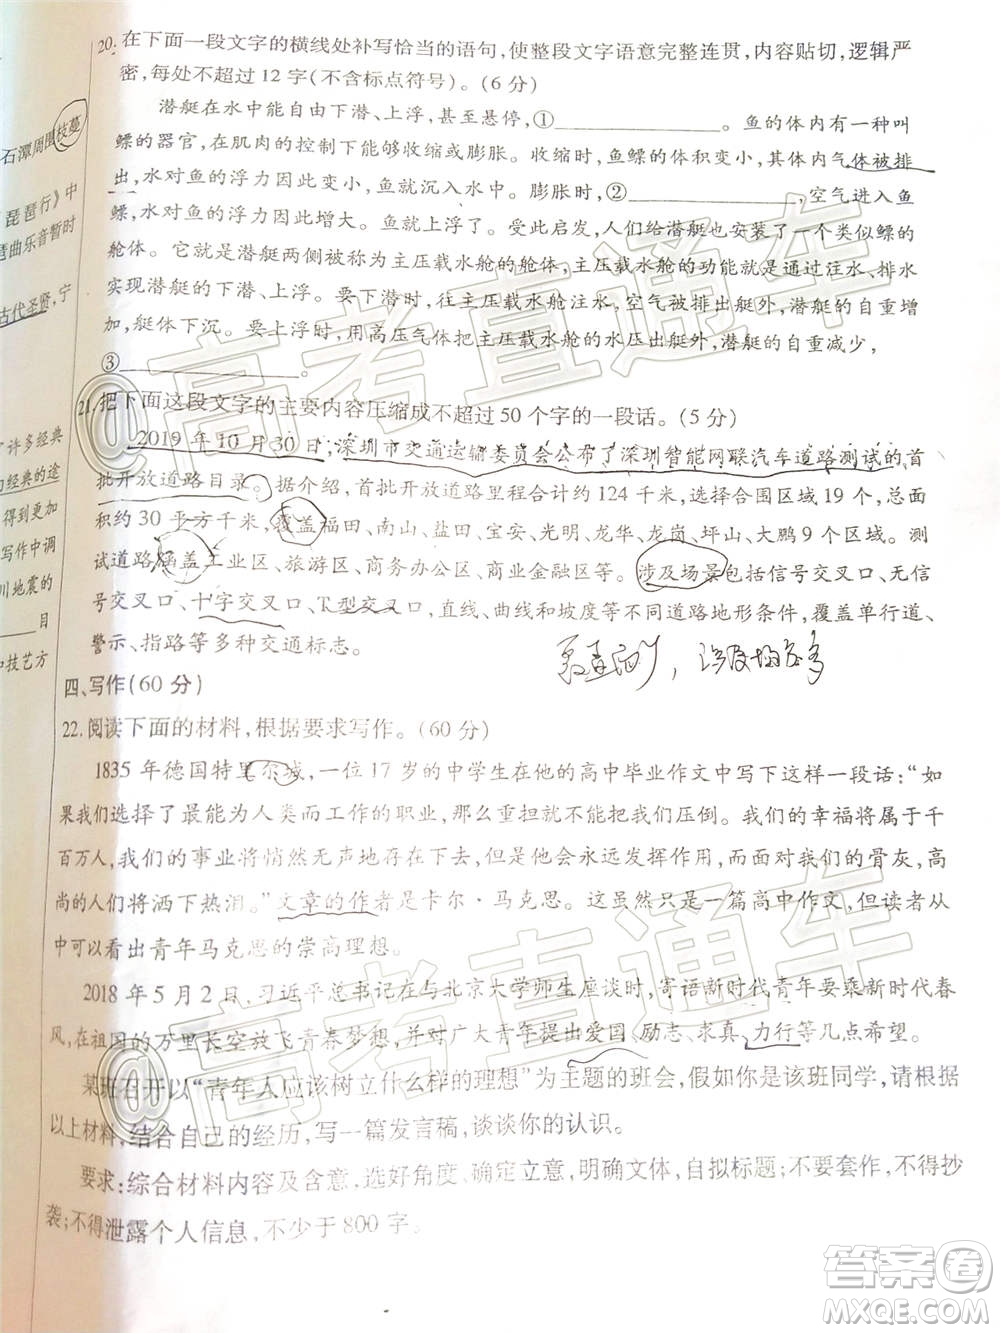 20. 在下面一段文字的横线处补写恰当的语句,使整段文字语意完整连贯,内容贴切,逻辑严
密,每处不超过12字(不含标点符号)。(6分)
潜艇在水中能自由下潜、上浮,甚至悬停,①____________。鱼的体内有一种叫
鳔的器官,在肌肉的控制下能够收缩或膨胀。收缩时,鱼鳔体积变小,其体内气体被排
出,水对鱼的浮力因此变小,鱼就沉入水中。膨胀时,②____________,空气进入鱼
鳔,水对鱼的浮力增大。鱼就上浮了。受此启发,人们给潜艇也安装了一个类似鳔的
舱体。它就是潜艇两侧被称为主压载水舱的舱体,主压载水舱的功能就是通过注水、排水
实现潜艇的下潜、上浮。要下潜时,往主压载水舱注水,空气被排出艇外,潜艇的自重增
加,艇体下沉。要上浮时,用高压气体把主压载水舱的水压出艇外,潜艇的自重减少,
③____________。
21. 把下面这段文字的主要内容压缩成不超过50个字的一段话。(5分)
2019年10月30日,深圳市交通运输委员会公布了深圳智能网联汽车道路测试的首
批开放道路目录。据介绍,首批开放道路里程合计约124千米,选择合围区域19个,总面
积约30平方千米,覆盖福田、南山、盐田、宝安、光明、龙华、龙岗、坪山、大鹏9个区。测
试道路涵盖工业区、旅游区、商务办公区、商业金融区等。涉及场景包括信号交叉口、无信
号交叉口、十字交叉口、T型交叉口,直线、曲线和坡度等不同道路地形条件,覆盖单行道、
警示、指路等多种交通标志。
四、写作(60分)
22. 阅读下面的材料,根据要求写作。(60分)
1835年德国特里尔城,一位17岁的中学生在他的高中毕业作文中写下这样一段话:“如
果我们选择了最能为人类而工作的职业,那么重担就不能把我们压倒。我们的幸福将属于千
百万人,我们的事业将悄然无声地存在下去,但是它会永远发挥作用,而面对我们的骨灰,高
尚的人们将洒下热泪。”文章的作者是卡尔·马克思。这虽然只是一篇高中作文,但读者从
中可以看出青年马克思的崇高理想。
2018年5月2日,习近平总书记在与北京大学师生座谈时,寄语新时代青年要乘新时代春
风,在祖国的万里长空放飞青春梦想,并对广大青年提出爱国、励志、求真、力行等几点希望。
某班召开以“青年人应该树立什么样的理想”为主题的班会,假如你是该班同学,请根据
以上材料,结合自己的经历,写一篇发言稿,谈谈你的认识。
要求:综合材料内容及含意,选好角度、确定立意,明确文体,自拟标题;不要套作,不得抄
袭;不得泄露个人信息,不少于800字。
石潭周围枝蔓
琵琶行》中
琶曲乐音暂时
古代圣贤,宁
许多经典
的经典的途
得到更加
写作中调
川地震的
____目
和技艺方
@高考直通车
@高考直通车
答案卷
MXQE.COM